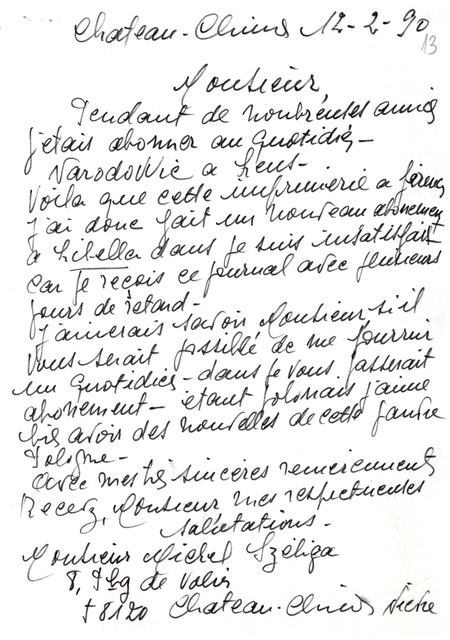 Chateau-Chinon 12-2-90
13
Monsieur,
Pendant de nombreuses année
j'étais abonner au Quotidien -
Narodowie a Lens -
Voila que cette imprimerie a fermer
j'ai donc fait un nouveau abonement
a Libella dans je suis insatisfait
car je reçois ce journal avec plusieurs
jours de retard -
J'aimerais savoir Monsieur si il
vous serait possible de me fournir
un Quotidien - dans je vous passerait
abonement - étant polonais j'aime
bien avoir des nouvelles de cette pauvre
Pologne -
avec mes très sincères remerciements
Recevez, Monsieur mes respectueuses
salutations -
Monsieur Michel Szeliga
8, Fbg de
58120 Chateau-Chinon Nièvre